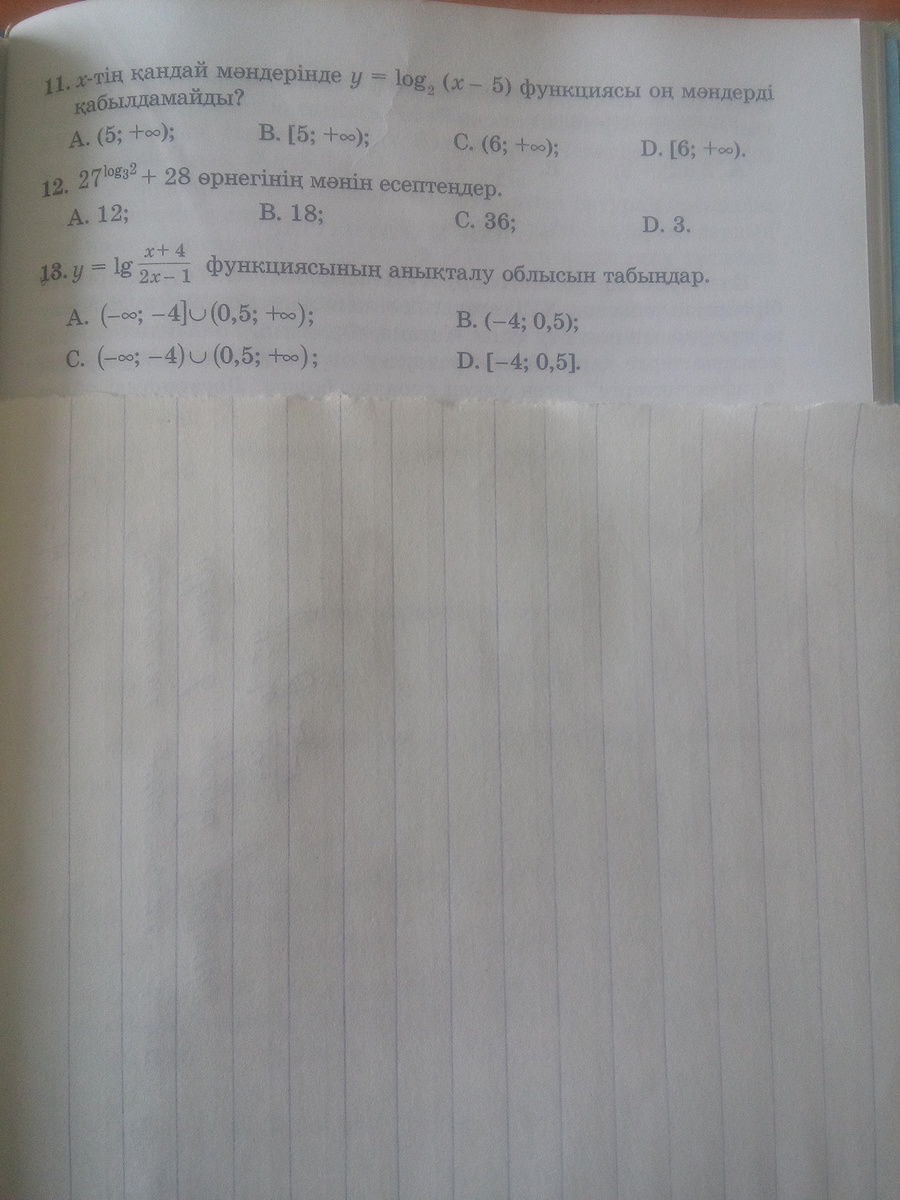 11. x-тің қандай мәндерінде y = log₂ (x − 5) функциясы оң мәндерді
қабылдамайды?
A. (5; +∞); B. [5; +∞); C. (6; +∞); D. [6; +∞).
12. 27^log₃2 + 28 өрнегінің мәнін есептеңдер.
A. 12; B. 18; C. 36; D. 3.
13. y = lg (x + 4)/(2x − 1) функциясының анықталу облысын табыңдар.
A. (−∞; −4]∪(0,5; +∞); B. (−4; 0,5);
C. (−∞; −4)∪(0,5; +∞); D. [−4; 0,5].